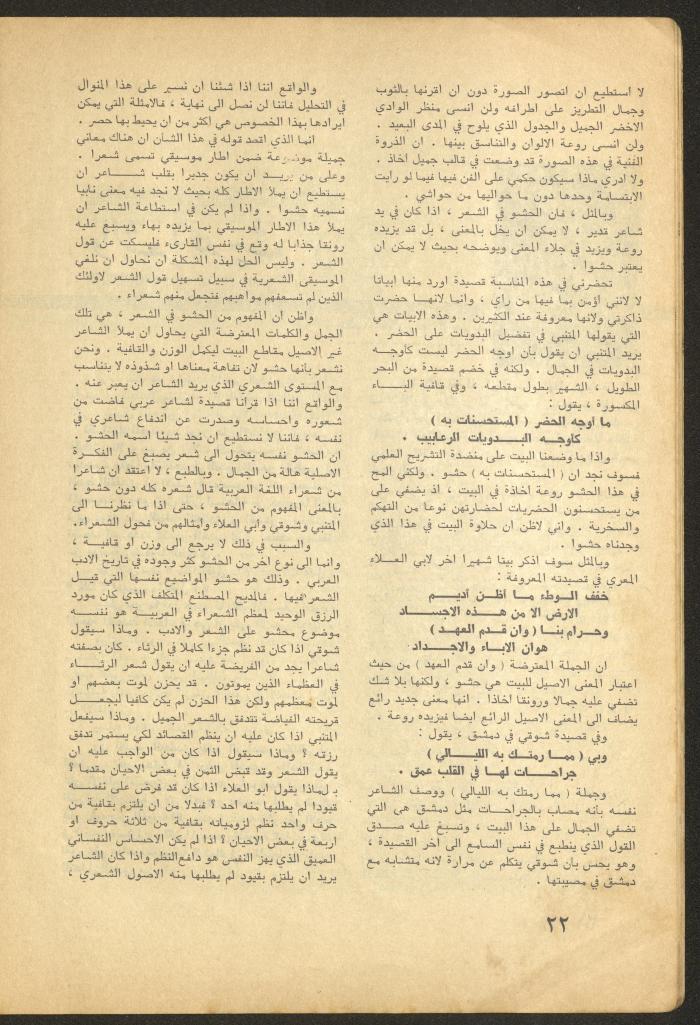 لا استطيع ان اتصور الصورة دون ان اقرنها بالثوب
وجمال التطريز على اطرافه ولن انسى منظر الوادي
الاخضر الجميل والجدول الذي يلوح في المدى البعيد .
ولن انسى روعة الالوان والتناسق بينها . ان الذروة
الفنية في هذه الصورة قد وضعت في قالب جميل اخاذ .
ولا ادري ماذا سيكون حكمي على الفن فيها فيما لو رايت
الابتسامة وحدها دون ما حواليها من حواشي .
وبالمثل ، فان الحشو في الشعر ، اذا كان في يد
شاعر قدير ، لا يمكن ان يخل بالمعنى ، بل قد يزيده
روعة ويزيد في جلاء المعنى ويوضحه بحيث لا يمكن ان
يعتبر حشوا .
تحضرني في هذه المناسبة قصيدة اورد منها ابياتا
لا لانني اؤمن بما فيها من راي ، وانما لانهـا حضرت
ذاكرتي ولانها معروفة عند الكثيرين . وهذه الابيات هي
التي يقولها المتنبي في تفضيل البدويات على الحضر .
يريد المتنبي ان يقول بان اوجه الحضر ليست كاوجـه
البدويات في الجمال . ولكنه في خضم قصيدة من البحر
الطويل ، الشهير بطول مقطعه ، وفي قافية البـــاء
المكسورة ، يقول :
ما اوجه الحضر ( المستحسنات به )
كاوجـه البـدويات الرعابيب .
واذا ما وضعنا البيت على منضدة التشريح العلمي
فسوف نجد ان ( المستحسنات به ) حشو . ولكني المح
في هذا الحشو روعة اخاذة في البيت ، اذ يضفي على
من يستحسنون الحضريات لحضارتهن نوعا من التهكم
والسخرية . واني لاظن ان حلاوة البيت في هذا الذي
وجدناه حشوا .
وبالمثل سوف اذكر بيتا شهيرا اخر لابي العـلاء
المعري في قصيدته المعروفة :
خفف الـوطـاء مـا اظـن اديــم
الارض الا من هـذه الاجسـاد
وحـرام بنـا ( وان قدم العهـد )
هوان الابـاء والاجـداد
ان الجملة المعترضة ( وان قدم العهد ) من حيث
اعتبار المعنى الاصيل للبيت هي حشو ، ولكنها بلا شك
تضفي عليه جمالا ورونقا اخاذا . انها معنى جديد رائع
يضاف الى المعنى الاصيل الرائع ايضا فيزيده روعة .
وفي قصيدة شوقي في دمشق ، يقول :
وبي ( ممـا رمتـك به الليـالي )
جراحـات لهـا في القلب عمق .
وجملة ( مما رمتك به الليالي ) ووصف الشاعر
نفسه بانه مصاب بالجراحات مثل دمشق هى التي
تضفي الجمال على هذا البيت ، وتسبغ عليه صـدق
القول الذي ينطبع في نفس السامع الى اخر القصيدة ،
وهو يحس بان شوقي يتكلم عن مرارة لانه متشابه مع
دمشق في مصيبتها .
والواقع اننا اذا شئنا ان نسير على هذا المنوال
في التحليل فاننا لن نصل الى نهاية ، فالامثلة التي يمكن
ايرادها بهذا الخصوص هي اكثر من ان يحيط بها حصر .
انما الذي اقصد قوله في هذا الشان ان هناك معاني
جميلة موضوعة ضمن اطار موسيقي تسمى شعرا .
وعلى من يريـد ان يكون جديرا بقلب شـــاعر ان
يستطيع ان يملا الاطار كله بحيث لا نجد فيه معنى نابيا
نسميه حشوا . واذا لم يكن في استطاعة الشاعر ان
يملا هذا الاطار الموسيقي بما يزيده بهاء ويسبغ عليه
رونقا جذابا له وقع في نفس القارىء فليسكت عن قول
الشعر . وليس الحل لهذه المشكلة ان نحاول ان نلغي
الموسيقى الشعرية في سبيل تسهيل قول الشعر لاولئك
الذين لم تسعفهم مواهبهم فتجعل منهم شعراء .
واظن ان المفهوم من الحشو في الشعر ، هي تلك
الجمل والكلمات المعترضة التي يحاول ان يملا الشاعر
غير الاصيل مقاطع البيت ليكمل الوزن والقافية . ونحن
نشعر بانها حشو لان تفاهة معناها او شذوذه لا يتناسب
مع المستوى الشعري الذي يريد الشاعر ان يعبر عنه .
والواقع اننا اذا قرانا قصيدة لشاعر عربي فاضت من
شعوره واحساسه وصدرت عن اندفاع شاعري في
نفسه ، فاننا لا نستطيع ان نجد شيئا اسمه الحشو .
ان الحشو نفسه يتحول الى شعر يصبغ على الفكـرة
الاصلية هالة من الجمال . وبالطبع ، لا اعتقد ان شاعرا
من شعراء اللغة العربية قال شعره كله دون حشو ،
بالمعنى المفهوم من الحشو ، حتى اذا ما نظرنـا الى
المتنبي وشوقي وابي العلاء وامثالهم من فحول الشعراء.
والسبب في ذلك لا يرجع الى وزن او قافيـة ،
وانما الى نوع اخر من الحشو كثر وجوده في تاريخ الادب
العربي . وذلك هو حشو المواضيع نفسها التي قيـل
الشعر فيها . فالمديح المصطنع المتكلف الذي كان مورد
الرزق الوحيد لمعظم الشعراء في العربيـة هو نفسـه
موضوع محشو على الشعر والادب . وماذا سيقول
شوقي اذا كان قد نظم جزءا كاملا في الرثاء . كان بصفته
شاعرا يجد من الفريضة عليه ان يقول شعر الرثــاء
في العظماء الذين يموتون . قد يحزن لموت بعضهم او
لموت معظمهم ولكن هذا الحزن لم يكن كافيا ليجعـل
قريحته الفياضة تتدفق بالشعر الجميل . وماذا سيفعل
المتنبي اذا كان عليه ان ينظم القصائد لكي يستمر تدفق
رزقه ؟ وماذا سيقول اذا كان من الواجب عليه ان
يقول الشعر وقد قبض الثمن في بعض الاحيان مقدما ؟
بـ لماذا يقول ابو العلاء اذا كان قد فرض على نفسـه
قيودا لم يطلبها منه احد ؟ فبدلا من ان يلتزم بقافية من
حرف واحد نظم لزومياته بقافية من ثلاثة حروف او
اربعة في بعض الاحيان ؟ اذا لم يكن الاحساس النفساني
العميق الذي يهز النفس هو دافع النظم واذا كان الشاعر
يريد ان يلتزم بقيود لم يطلبها منه الاصول الشعري ،
٢٢